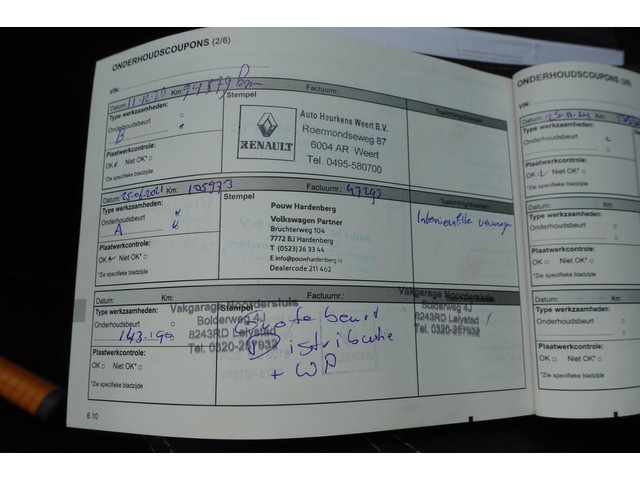 ONDERHOUDSCOUPONS (2/6)
VIN:
Datum: 11-12-20 Km: 94879 Factuurnr.:
Type werkzaamheden:
Stempel
Toelichting/diversen
Onderhoudsbeurt
B
Plaatwerkcontrole:
OK Niet OK*
*Zie specifieke bladzijde
RENAULT
Auto Hourkens Weert B.V.
Roermondseweg 87
6004 AR Weert
Tel. 0495-580700
Datum: 25-06-2021 Km: 105973 Factuurnr.: 47292
Type werkzaamheden:
Stempel
Toelichting/diversen
Onderhoudsbeurt
A
Plaatwerkcontrole:
OK Niet OK*
*Zie specifieke bladzijde
Pouw Hardenberg
Volkswagen Partner
Bruchterweg 104
7772 BJ Hardenberg
T (0523) 26 33 44
E info@pouwhardenberg.nl
Dealercode 211 462
Interieurfilter vervangen
Datum: Km: Factuurnr.:
Type werkzaamheden:
Stempel
Onderhoudsbeurt
Plaatwerkcontrole:
OK Niet OK*
*Zie specifieke bladzijde
Vakgarage Noordersluis
Bolderweg 4J
8243RD Lelystad
Tel. 0320-257932
Grote beurt
Distributie
+ WP
Vakgarage Noordersluis
Bolderweg 4J
8243RD Lelystad
Tel. 0320-257932
6.10
ONDERHOUDSCOUPONS
VIN:
Datum:
Type werkzaamheden:
Onderhoudsbeurt
Plaatwerkcontrole:
OK Niet OK*
*Zie specifieke bladzijde
Datum:
Type werkzaamheden:
Onderhoudsbeurt
Plaatwerkcontrole:
OK Niet OK*
*Zie specifieke bladzijde
Datum:
Type werkzaamheden:
Onderhoudsbeurt
Plaatwerkcontrole:
OK Niet OK*
*Zie specifieke bladzijde